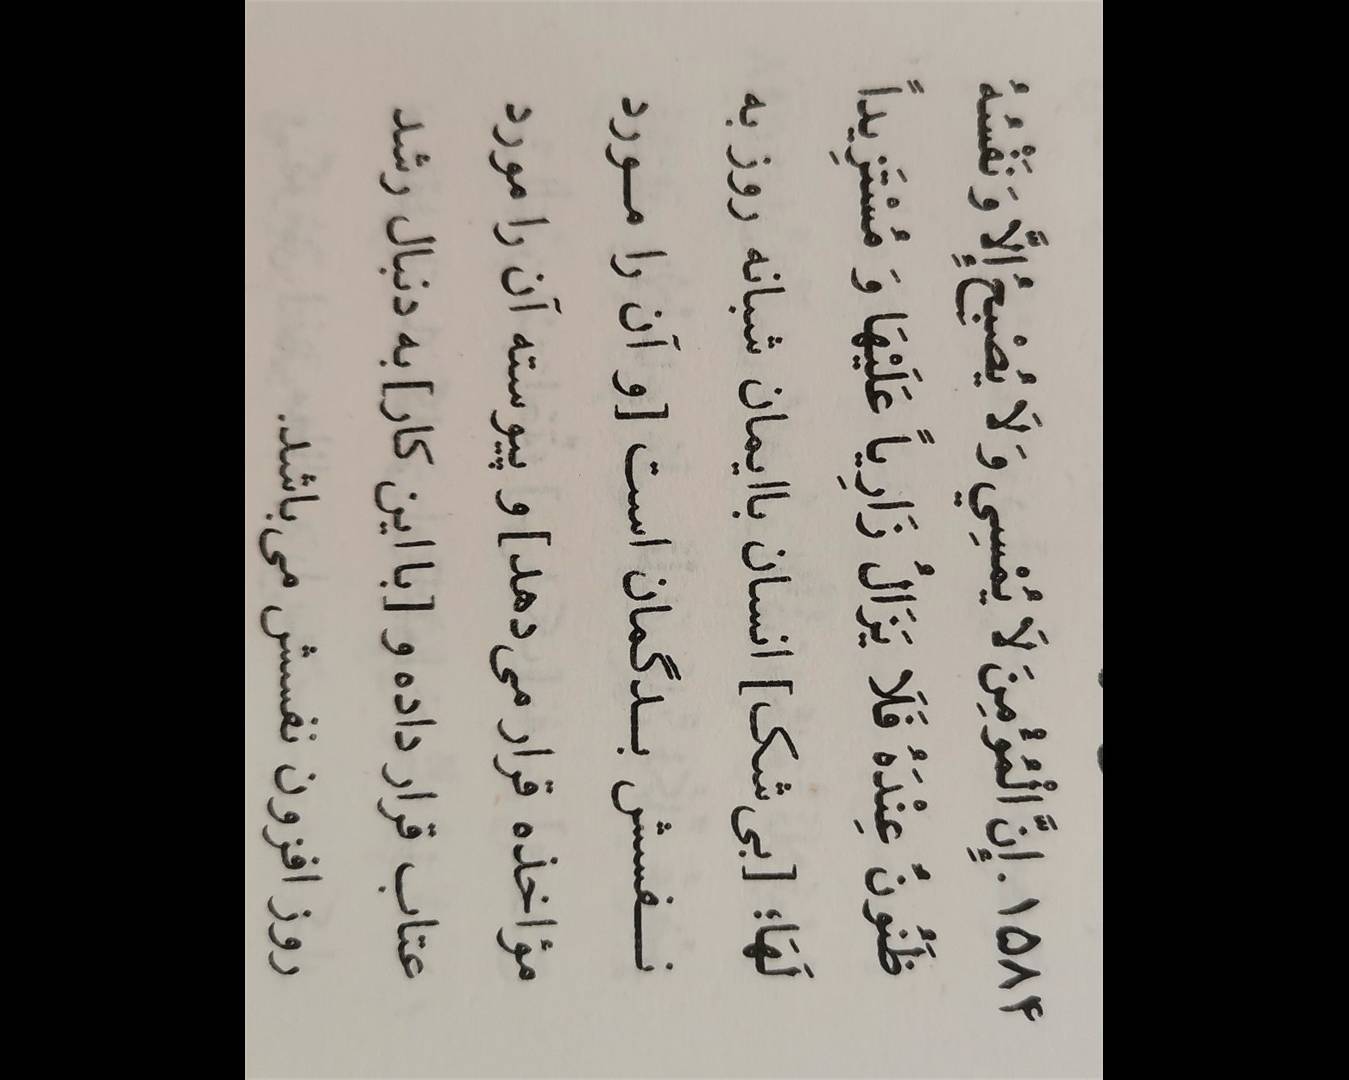 ۱۵۸۴. إِنَّ الْمُؤْمِنَ لَا يُمْسِي وَ لَا يُصْبِحُ إِلَّا وَ نَفْسُهُ
ظَنُونٌ عِنْدَهُ فَلَا يَزَالُ زَارِياً عَلَيْهَا وَ مُسْتَزِيداً
لَهَا؛ [بی‌شک] انسان باایمان شبانه روز به
نـفسش بـدگمان است [و آن را مـورد
مؤاخذه قرار می‌دهد] و پیوسته آن را مورد
عتاب قرار داده و [با این کار] به دنبال رشد
روز افزون نفسش می‌باشد.